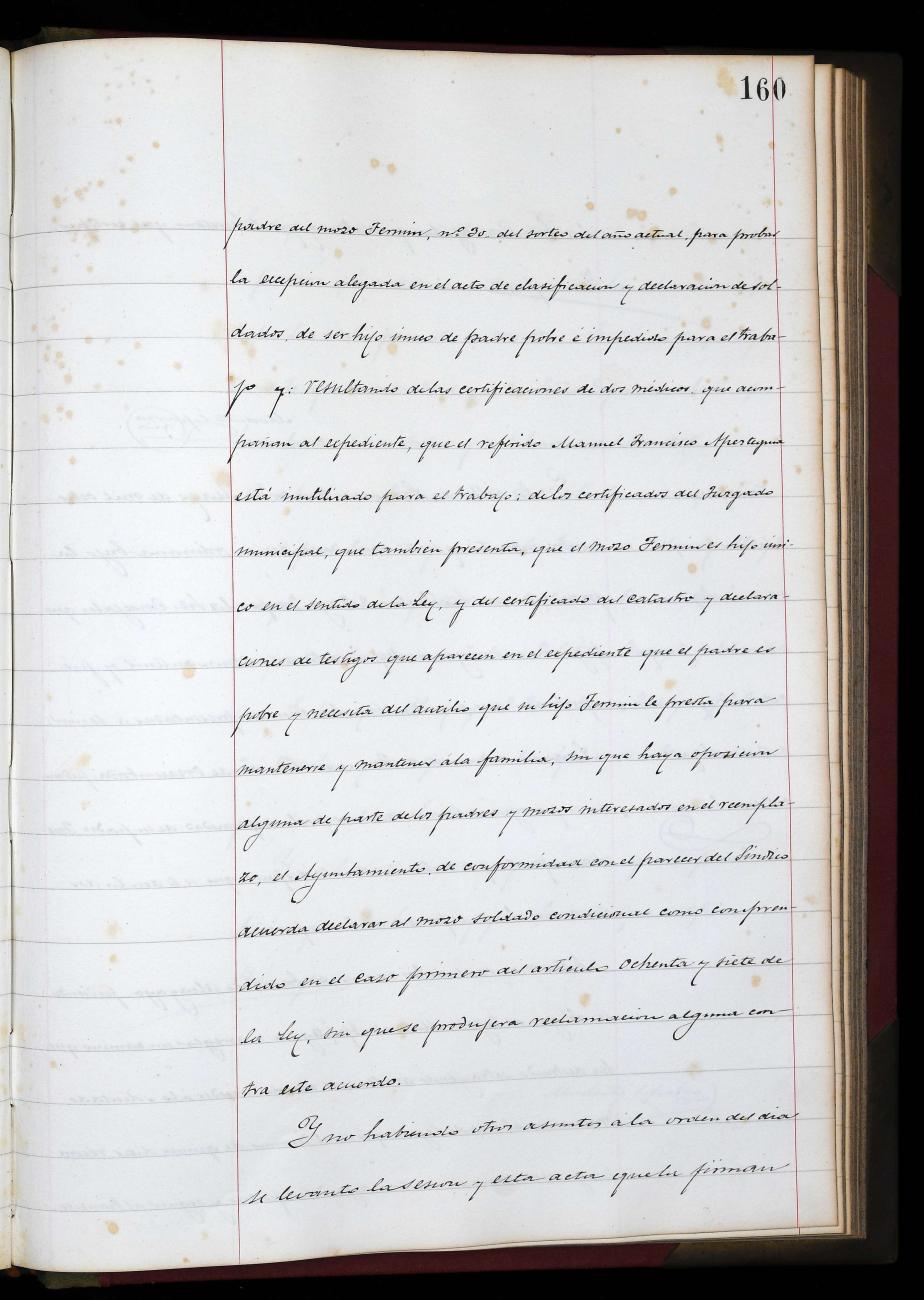 160
padre del mozo Fermin, nº 30. del sorteo del año actual, para probar
la excepcion alegada en el acto de clasificacion y declaracion de sol-
dados, de ser hijo único de padre pobre é impedido para el traba-
jo y: resultando de las certificaciones de dos médicos, que acom-
pañan al expediente, que el referido Manuel Francisco Apestegua
está inutilizado para el trabajo; de los certificados del Juzgado
municipal, que tambien presenta, que el mozo Fermin es hijo úni-
co en el sentido de la Ley, y del certificado del catastro y declara-
ciones de testigos que aparecen en el expediente que el padre es
pobre y necesita del auxilio que su hijo Fermin le presta para
mantenerse y mantener a la familia, sin que haya oposicion
alguna de parte de los padres y mozos interesados en el reempla-
zo, el Ayuntamiento, de conformidad con el parecer del Síndico
acuerda declarar al mozo soldado condicional como compren-
dido en el caso primero del artículo ochenta y siete de
la Ley, sin que se produjera reclamacion alguna con-
tra este acuerdo.
Y no habiendo otros asuntos a la orden del dia
se levantó la sesion y esta acta que la firman